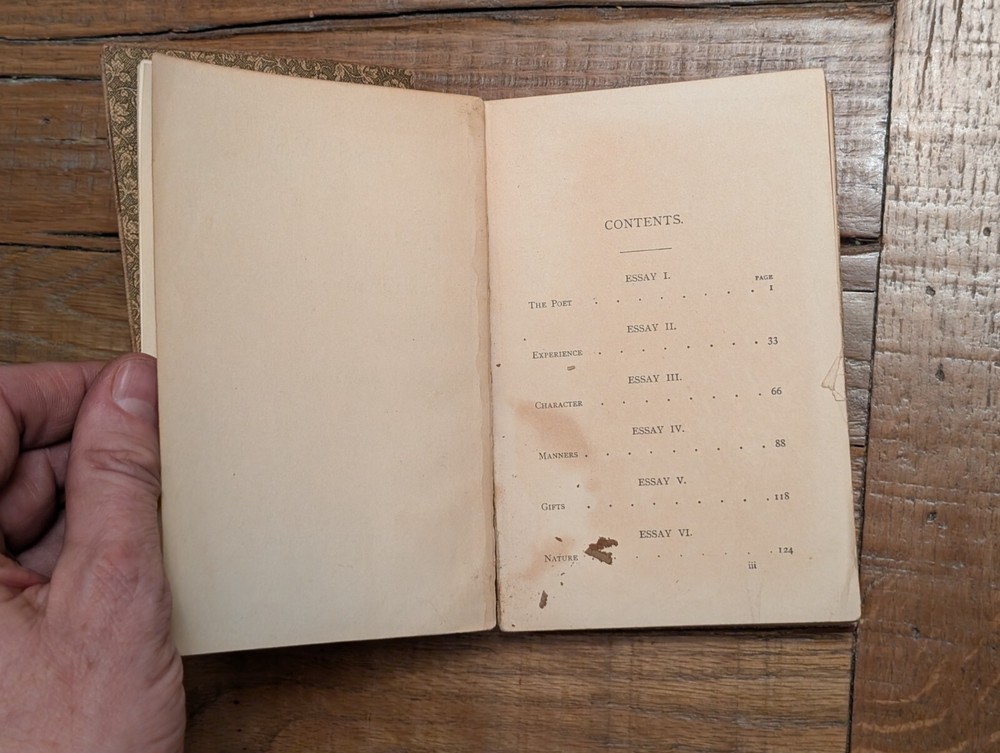 CONTENTS.
ESSAY I.
PAGE
The Poet . . . . . . . . 1
ESSAY II.
Experience . . . . . . . . 33
ESSAY III.
Character . . . . . . . . 66
ESSAY IV.
Manners . . . . . . . . . 88
ESSAY V.
Gifts . . . . . . . . . 118
ESSAY VI.
Nature . . . . . . . . 124
iii